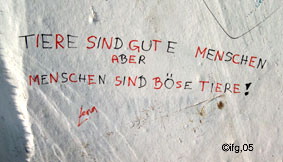 TIERE SIND GUTE MENSCHEN
ABER
MENSCHEN SIND BÖSE TIERE!
©ifg,05